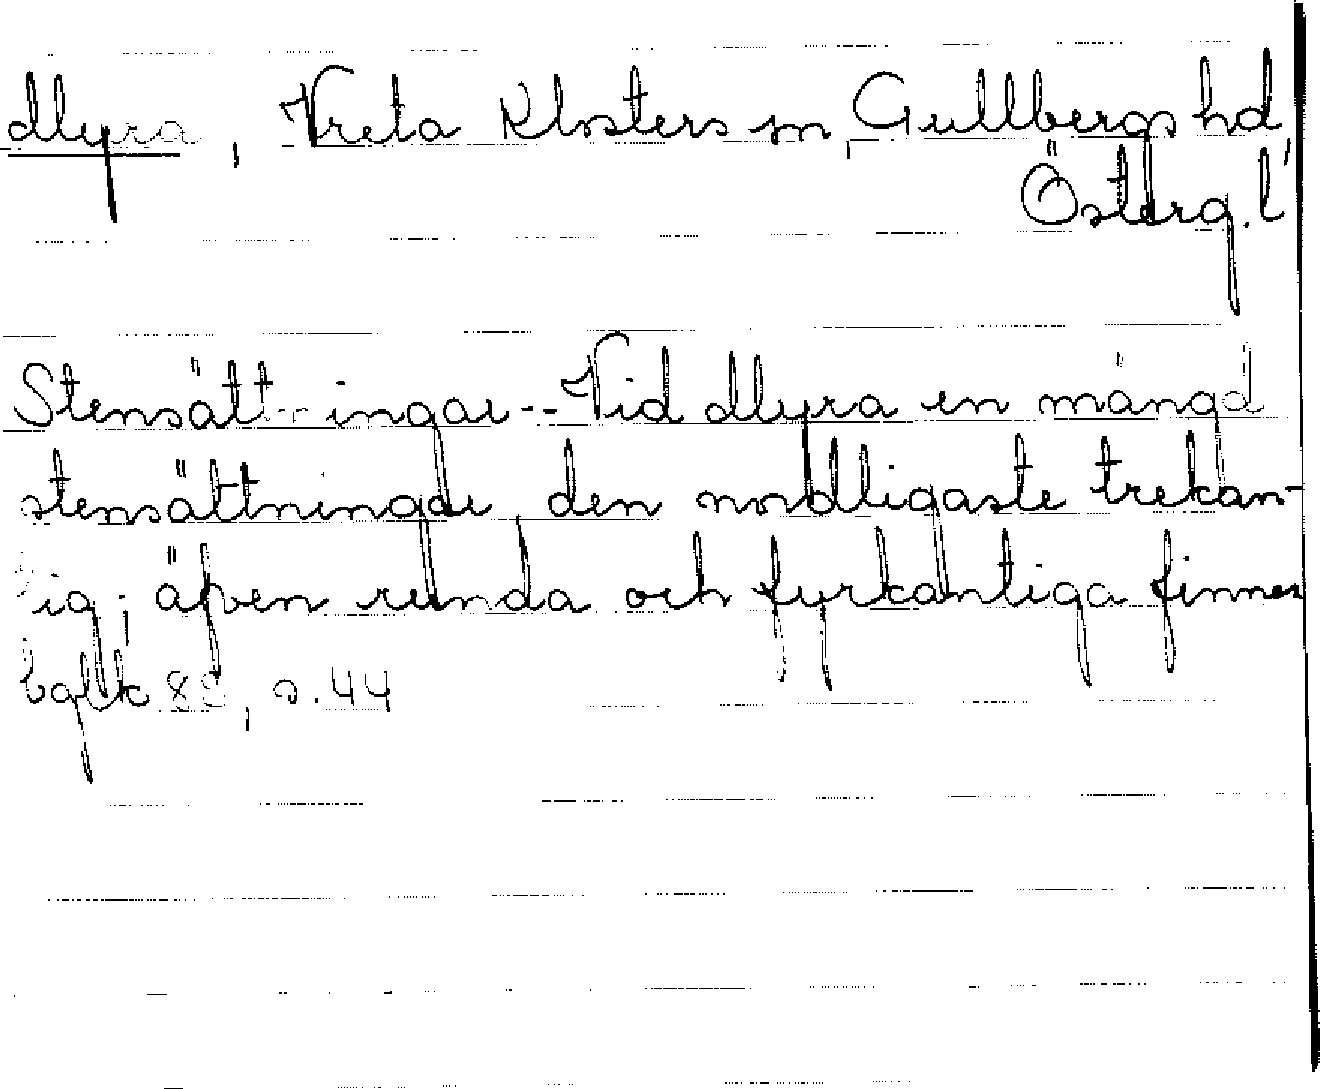 Allyra, Vreta Klosters sn, Gullbergs hd,
Österg. l
Stensättningar -- Vid Allyra en mängd
stensättningar den nordligaste trekan-
tig; äfven runda och fyrkantiga finnes
s. 44